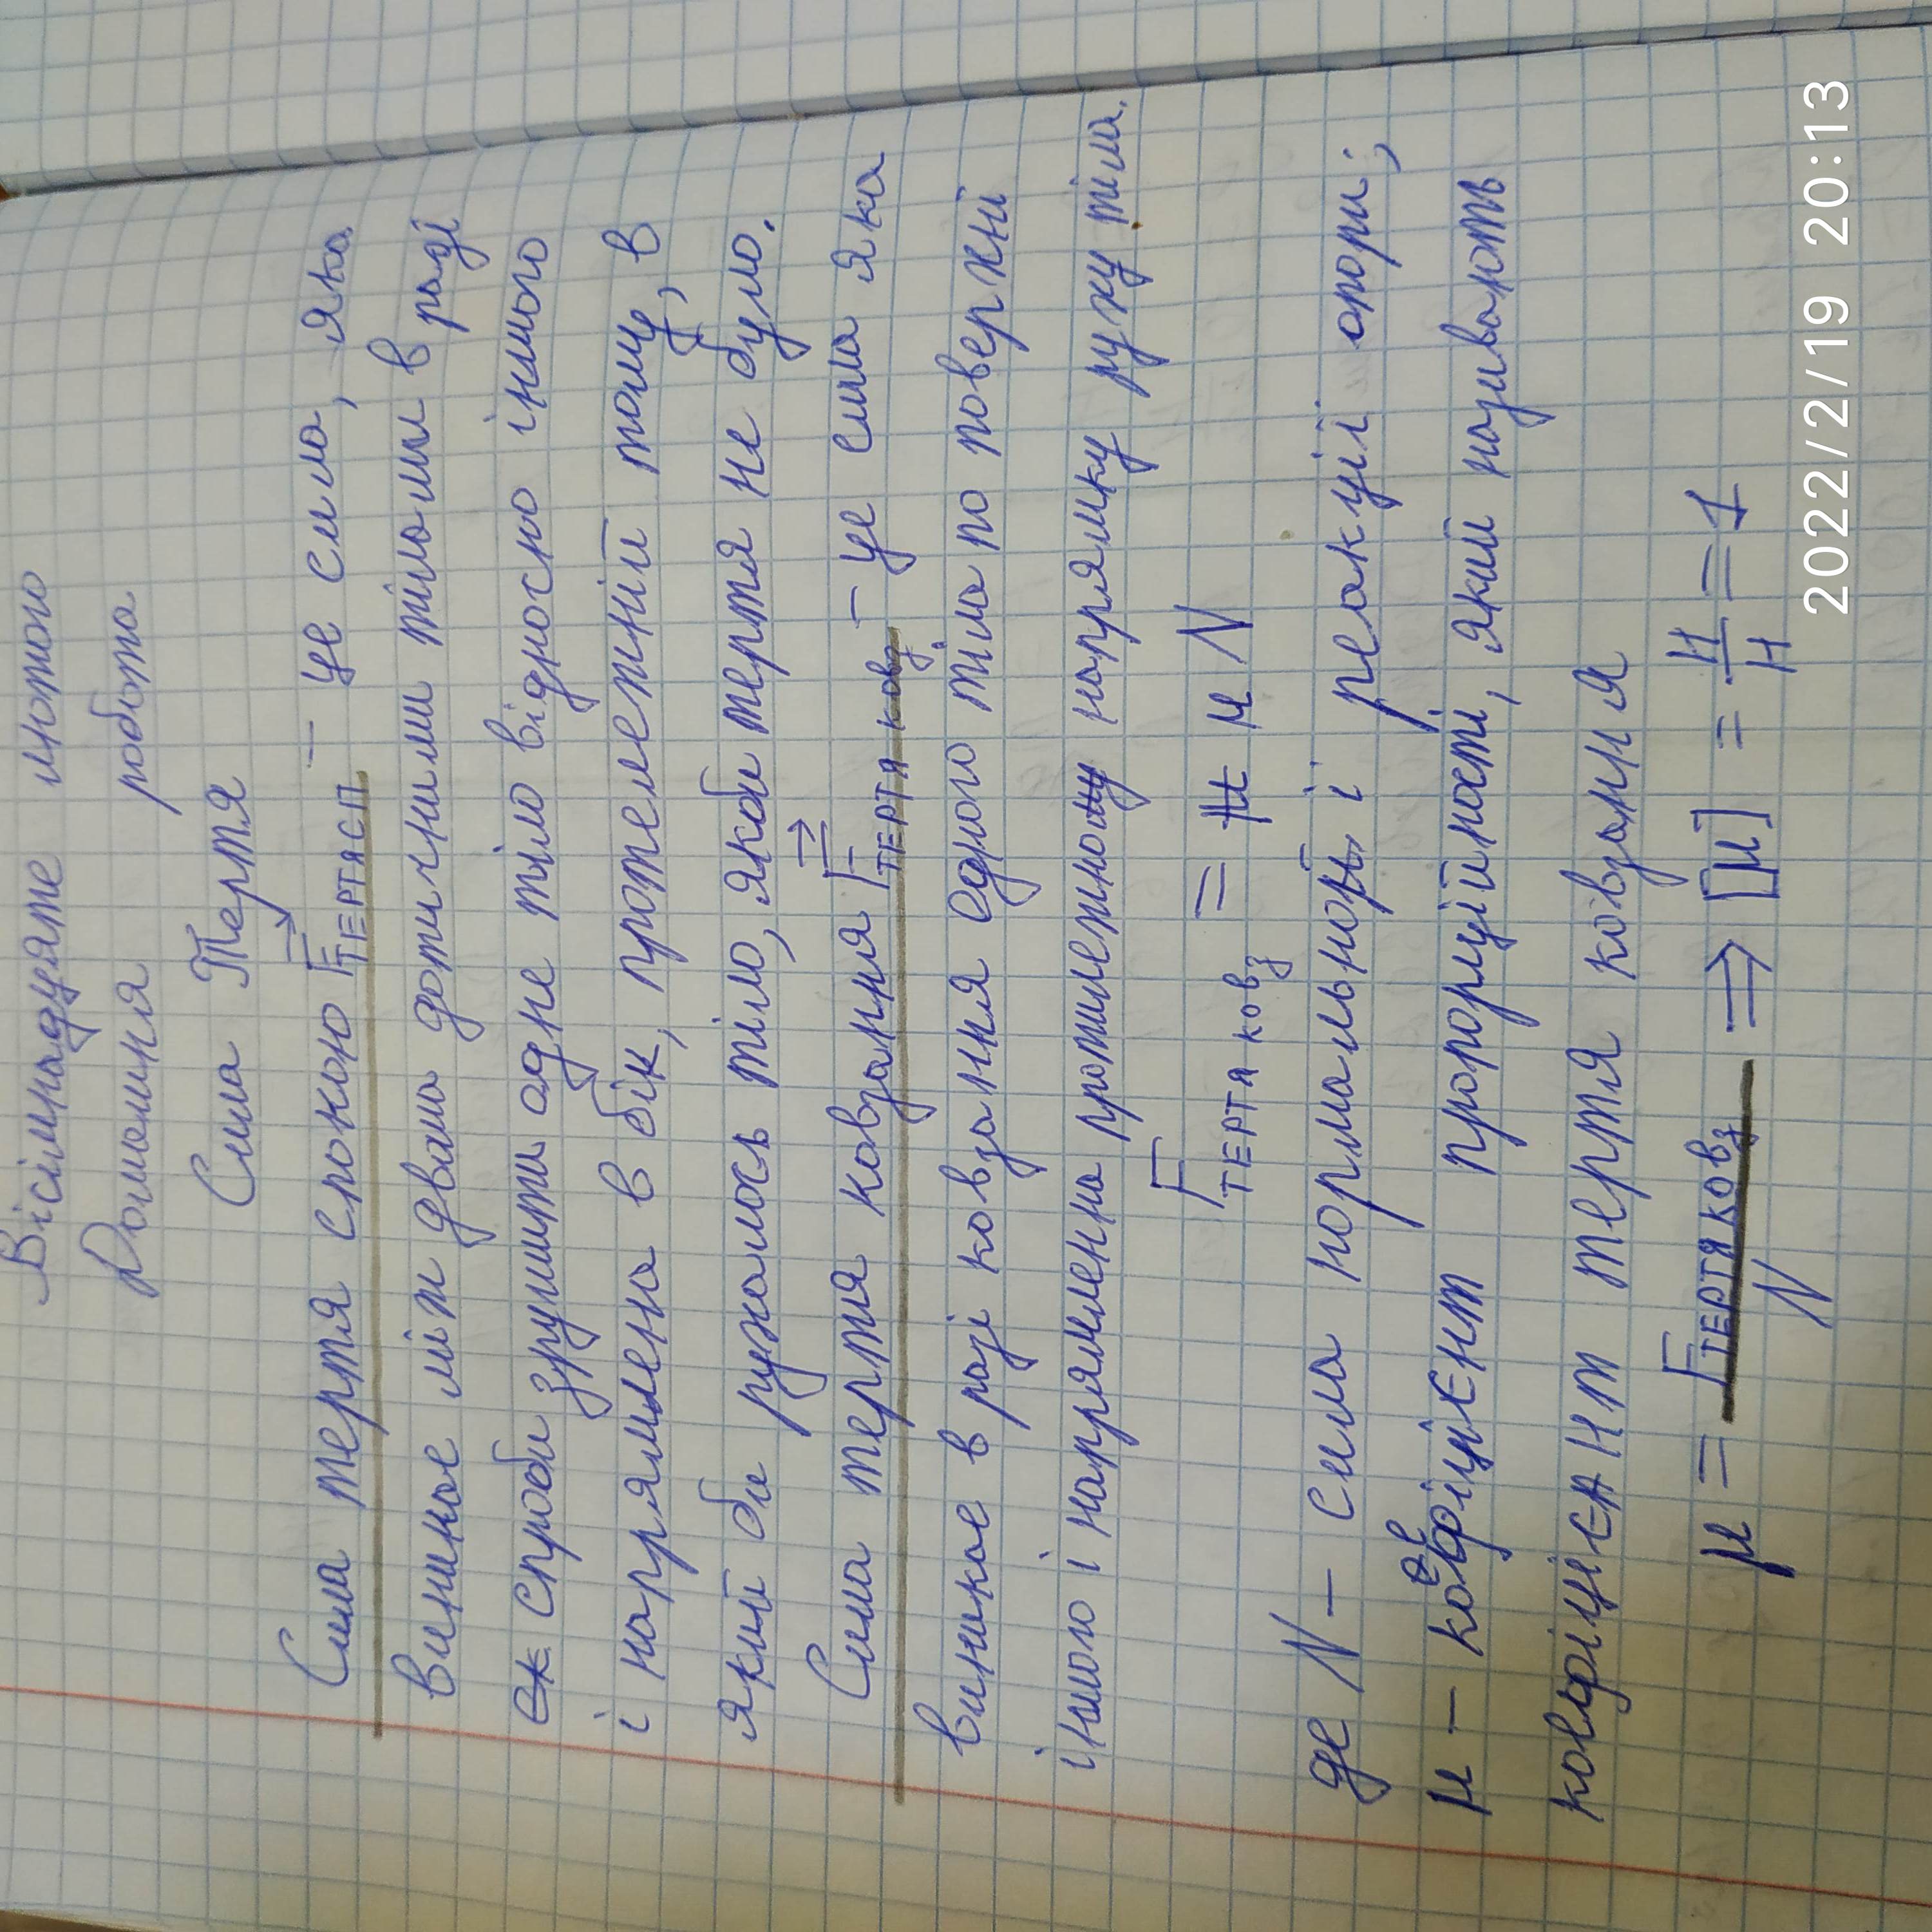 Вісімнадцяте лютого
Домашня робота
Сила Тертя
Сила тертя спокою F тертя сп – це сила, яка
виникає між двома дотичними тілами в разі
спроби зрушити одне тіло відносно іншого
і напрямлена в бік, протележний тому, в
який би рухалось тіло, якби тертя не було.
Сила тертя ковзання F тертя ковз – це сила яка
виникає в разі ковзання одного тіла по поверхні
іншого і напрямленна протилежному напрямку руху тіла.
F тертя ковз = μ N
де N – сила нормальної реакції опори;
μ – коефіцієнт пропорційності, який називають
коефіцієннт тертя ковзання
μ = F тертя ковз / N ⇒ [μ] = Н/Н = 1
2022/2/19 20:13